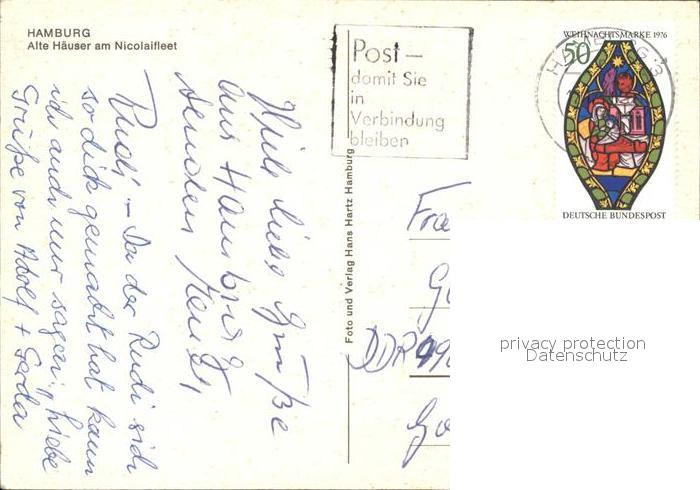 HAMBURG
Alte Häuser am Nicolaifleet
Post –
damit Sie
in
Verbindung
bleiben
WEIHNACHTSMARKE 1976
50
DEUTSCHE BUNDESPOST
HAMBURG 3
Foto und Verlag Hans Hartz Hamburg
Viele liebe Grüße
aus Hamburg
senden
Rudi – Da der Rudi sich
so dick gemacht hat kann
ich auch nur sagen: „Liebe
Grüße von Adolf + Gerda
Fra
DDR
privacy protection
Datenschutz